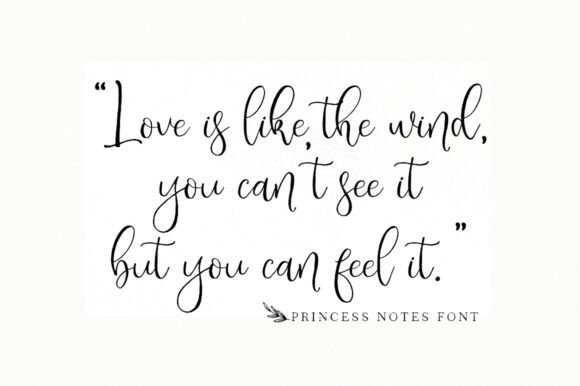 “Love is like the wind,
you can't see it
but you can feel it.”
PRINCESS NOTES FONT